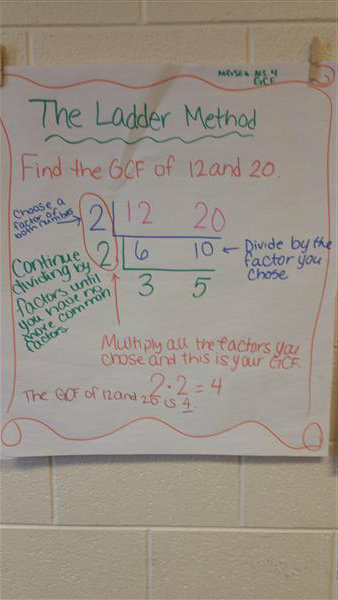 MCC6.NS.4
GCF
The Ladder Method
Find the GCF of 12 and 20.
Choose a
factor of
both numbers
2 12 20
2 6 10
3 5
Divide by the
factor you
chose
Continue
dividing by
factors until
you have no
more common
factors.
Multiply all the factors you
chose and this is your GCF.
2 · 2 = 4
The GCF of 12 and 20 is 4